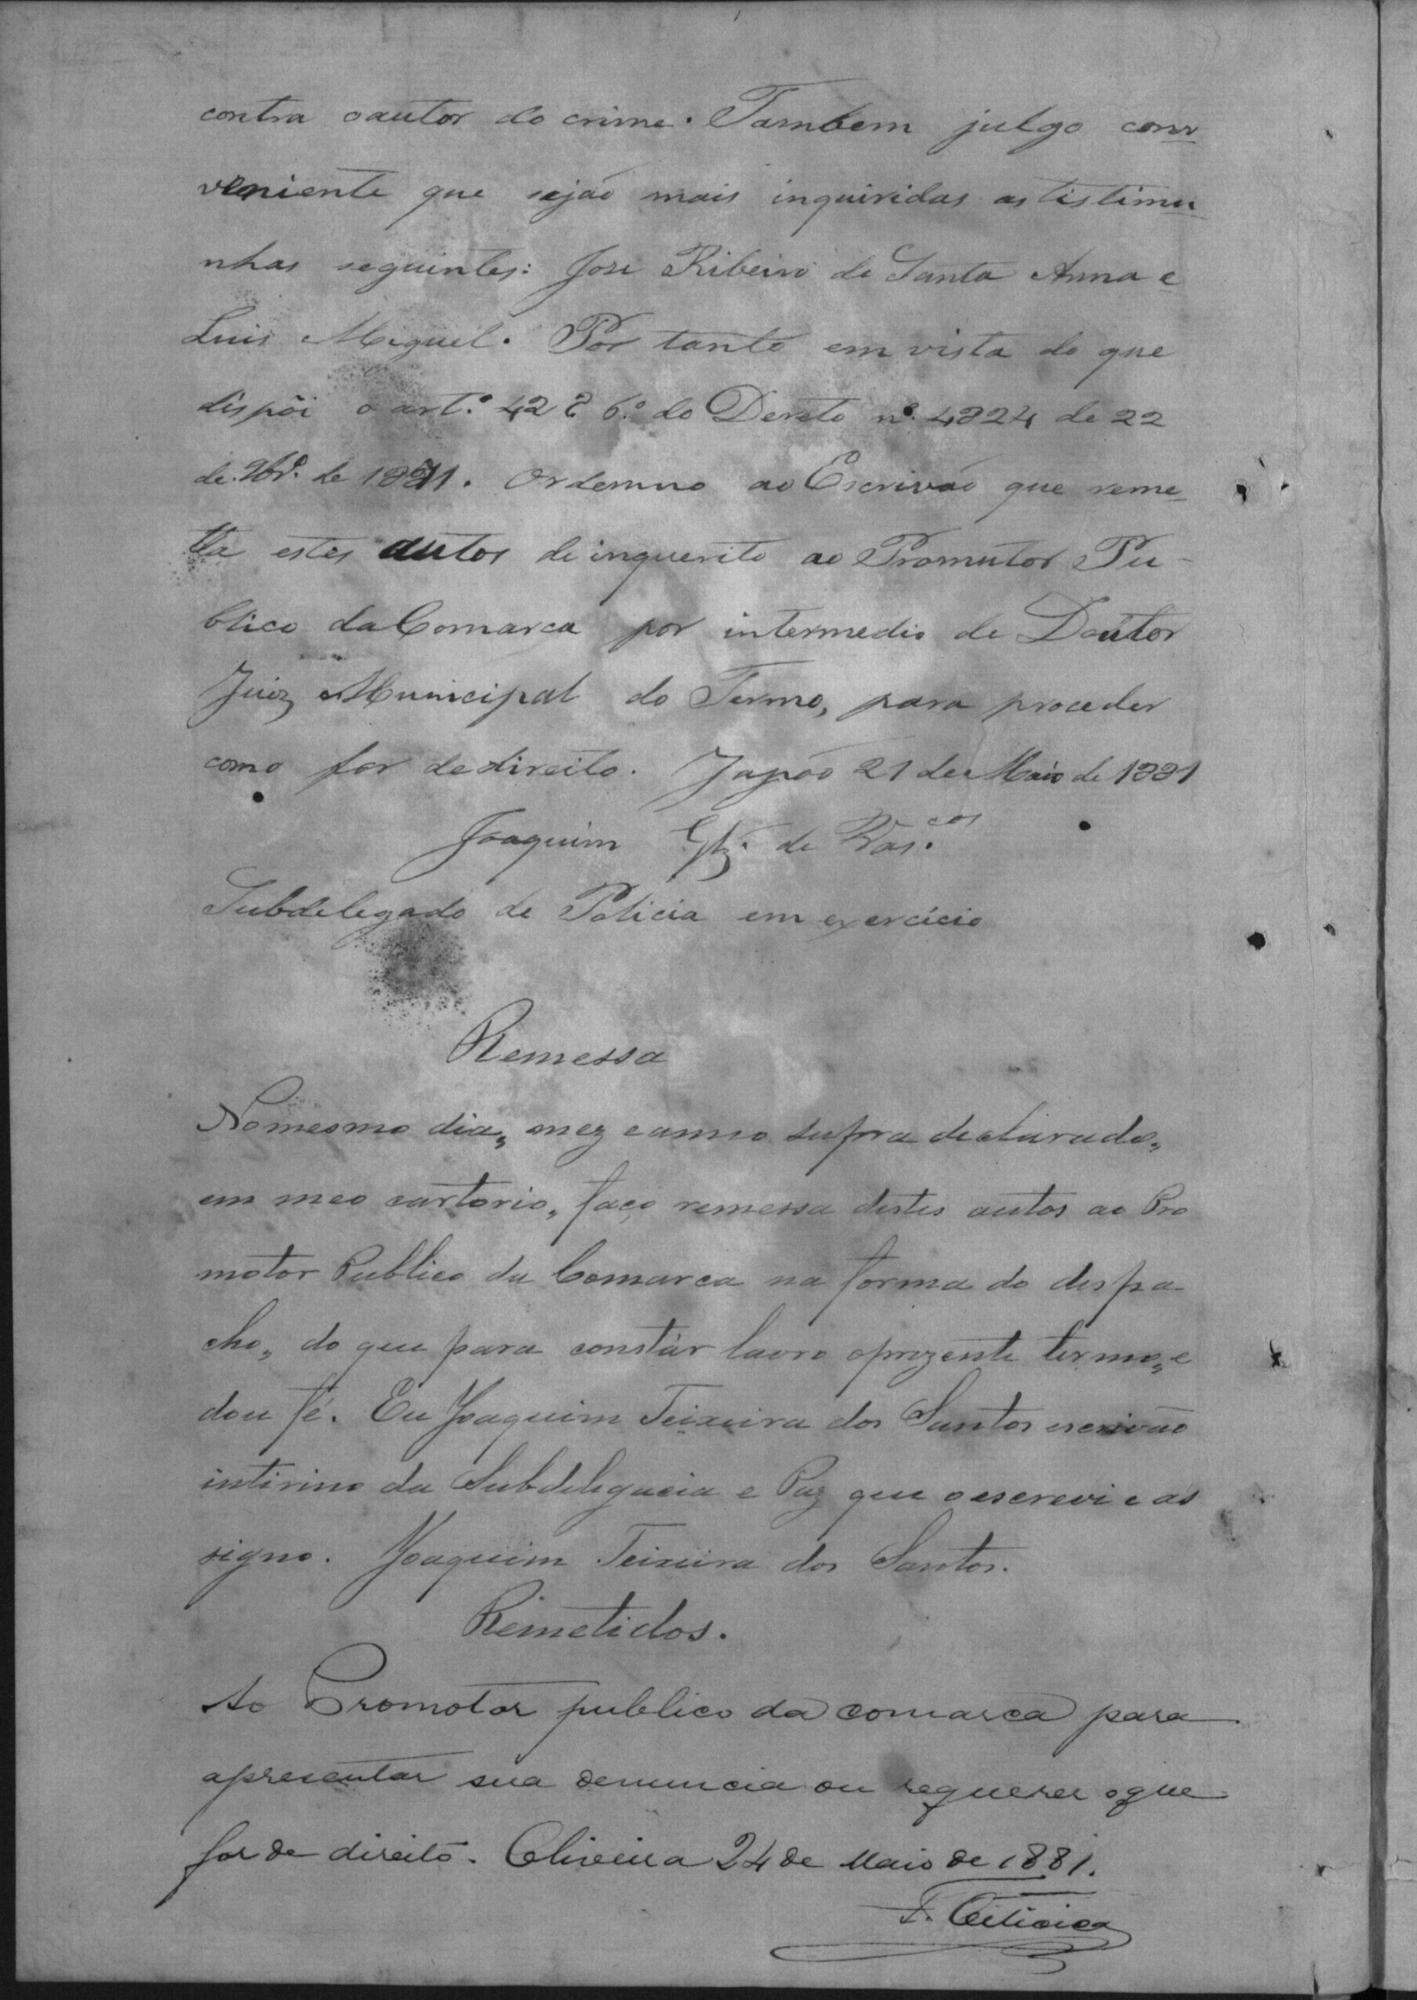 contra o autor do crime. Tambem julgo con
veniente que sejão mais inquiridas as tistimu
nhas seguintes: José Ribeiro de Santa Anna e
Luis Miguel. Por tanto em vista do que
dispõi o art.º 42 § 6.º do Dereto nº. 4824 de 22
de 9br.º de 1871. Ordenno ao Escrivão que reme
tta estes autos de inquerito ao Promutor Pu-
blico da Comarca por intermedio do Doutor
Juiz Municipal do Termo, para proceder
como for de direito. Japão 21 de Maio de 1881
Joaquim Glz. de Vas.cos
Subdelegado de Policia em exercicio
Remessa
No mesmo dia, mez e anno supra declarado,
em meo cartorio, faço remessa destes autos ao Pro
motor Publico da Comarca na forma do despa-
cho, do que para constár lavro o prezente termo, e
dou fé. Eu Joaquim Teixeira dos Santos escrivão
intirino da Subdelegacia e Paz que o escrevi e as
signo. Joaquim Teixeira dos Santos.
Remetidos.
Ao Promotor publico da comarca para
apresentar sua denuncia ou requerer o que
for de direito. Oliveira 24 de Maio de 1881.
F.